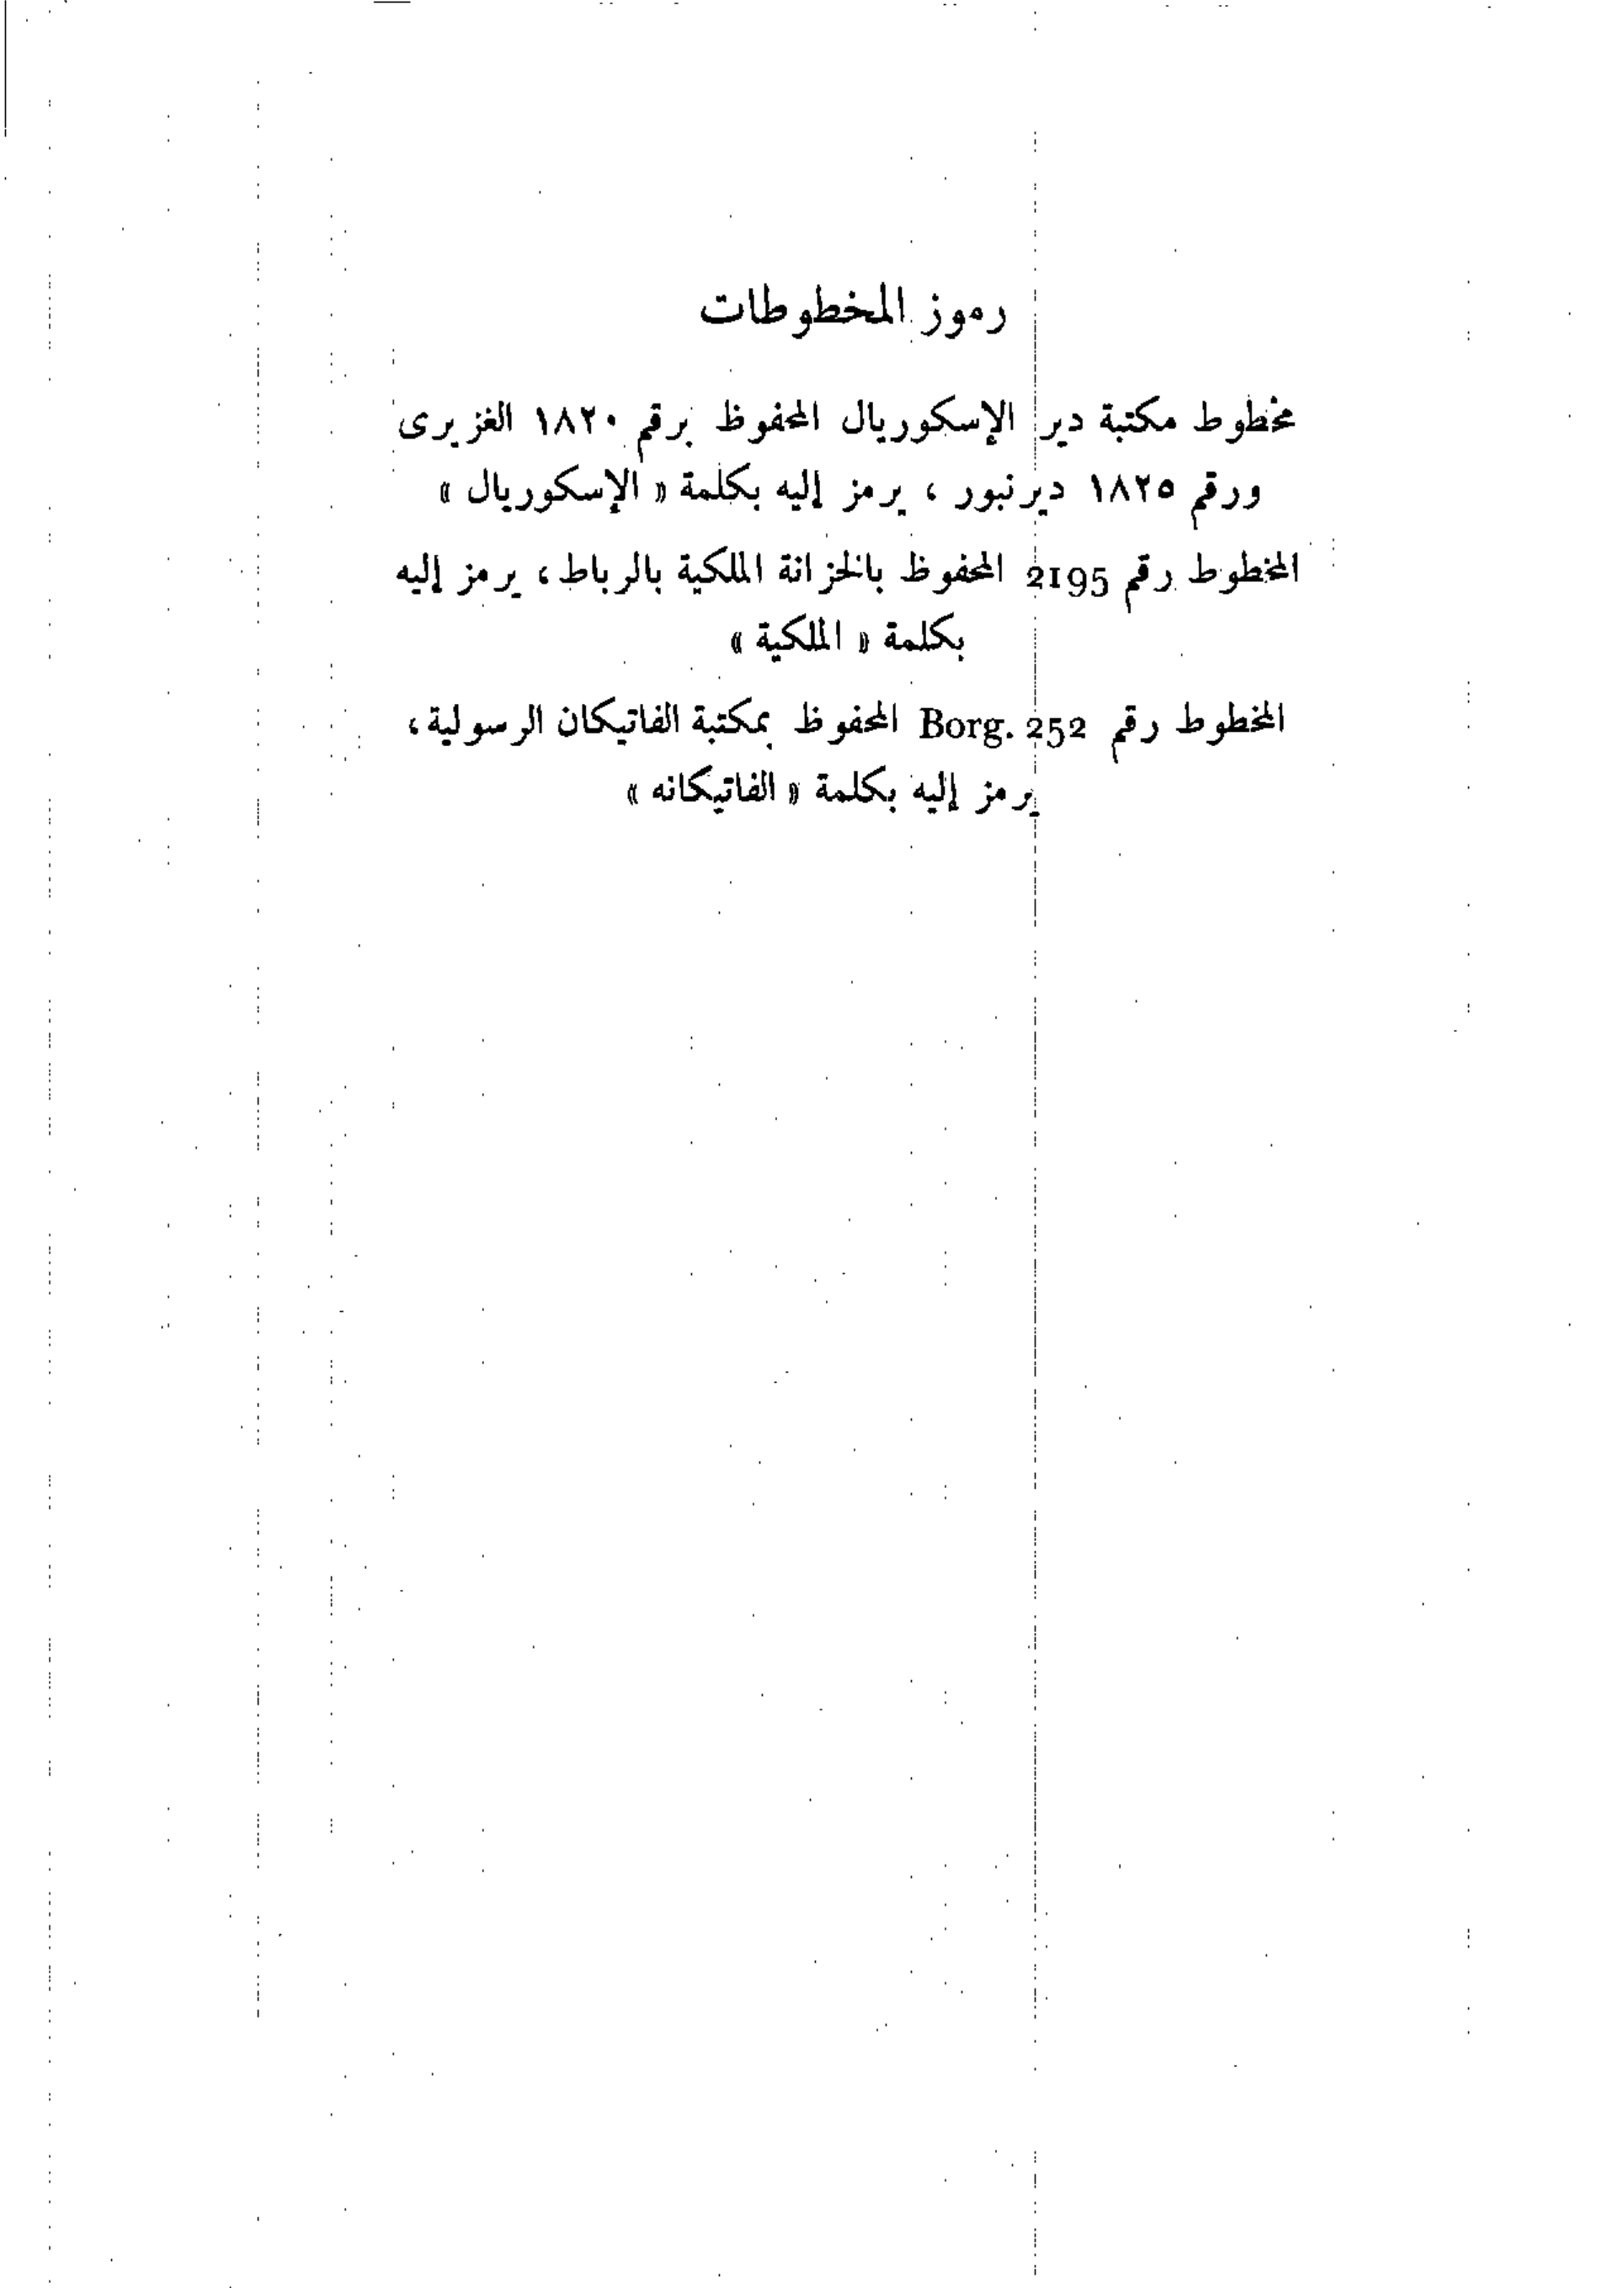 رموز المخطوطات
مخطوط مكتبة دير الإسكوريال المحفوظ برقم ١٨٢٠ الغزيرى
ورقم ١٨٢٥ ديرنبور ، يرمز إليه بكلمة « الإسكوريال »
المخطوط رقم 2195 المحفوظ بالخزانة الملكية بالرباط، يرمز إليه
بكلمة « الملكية »
المخطوط رقم Borg. 252 المحفوظ بمكتبة الفاتيكان الرسولية،
يرمز إليه بكلمة « الفاتيكانه »